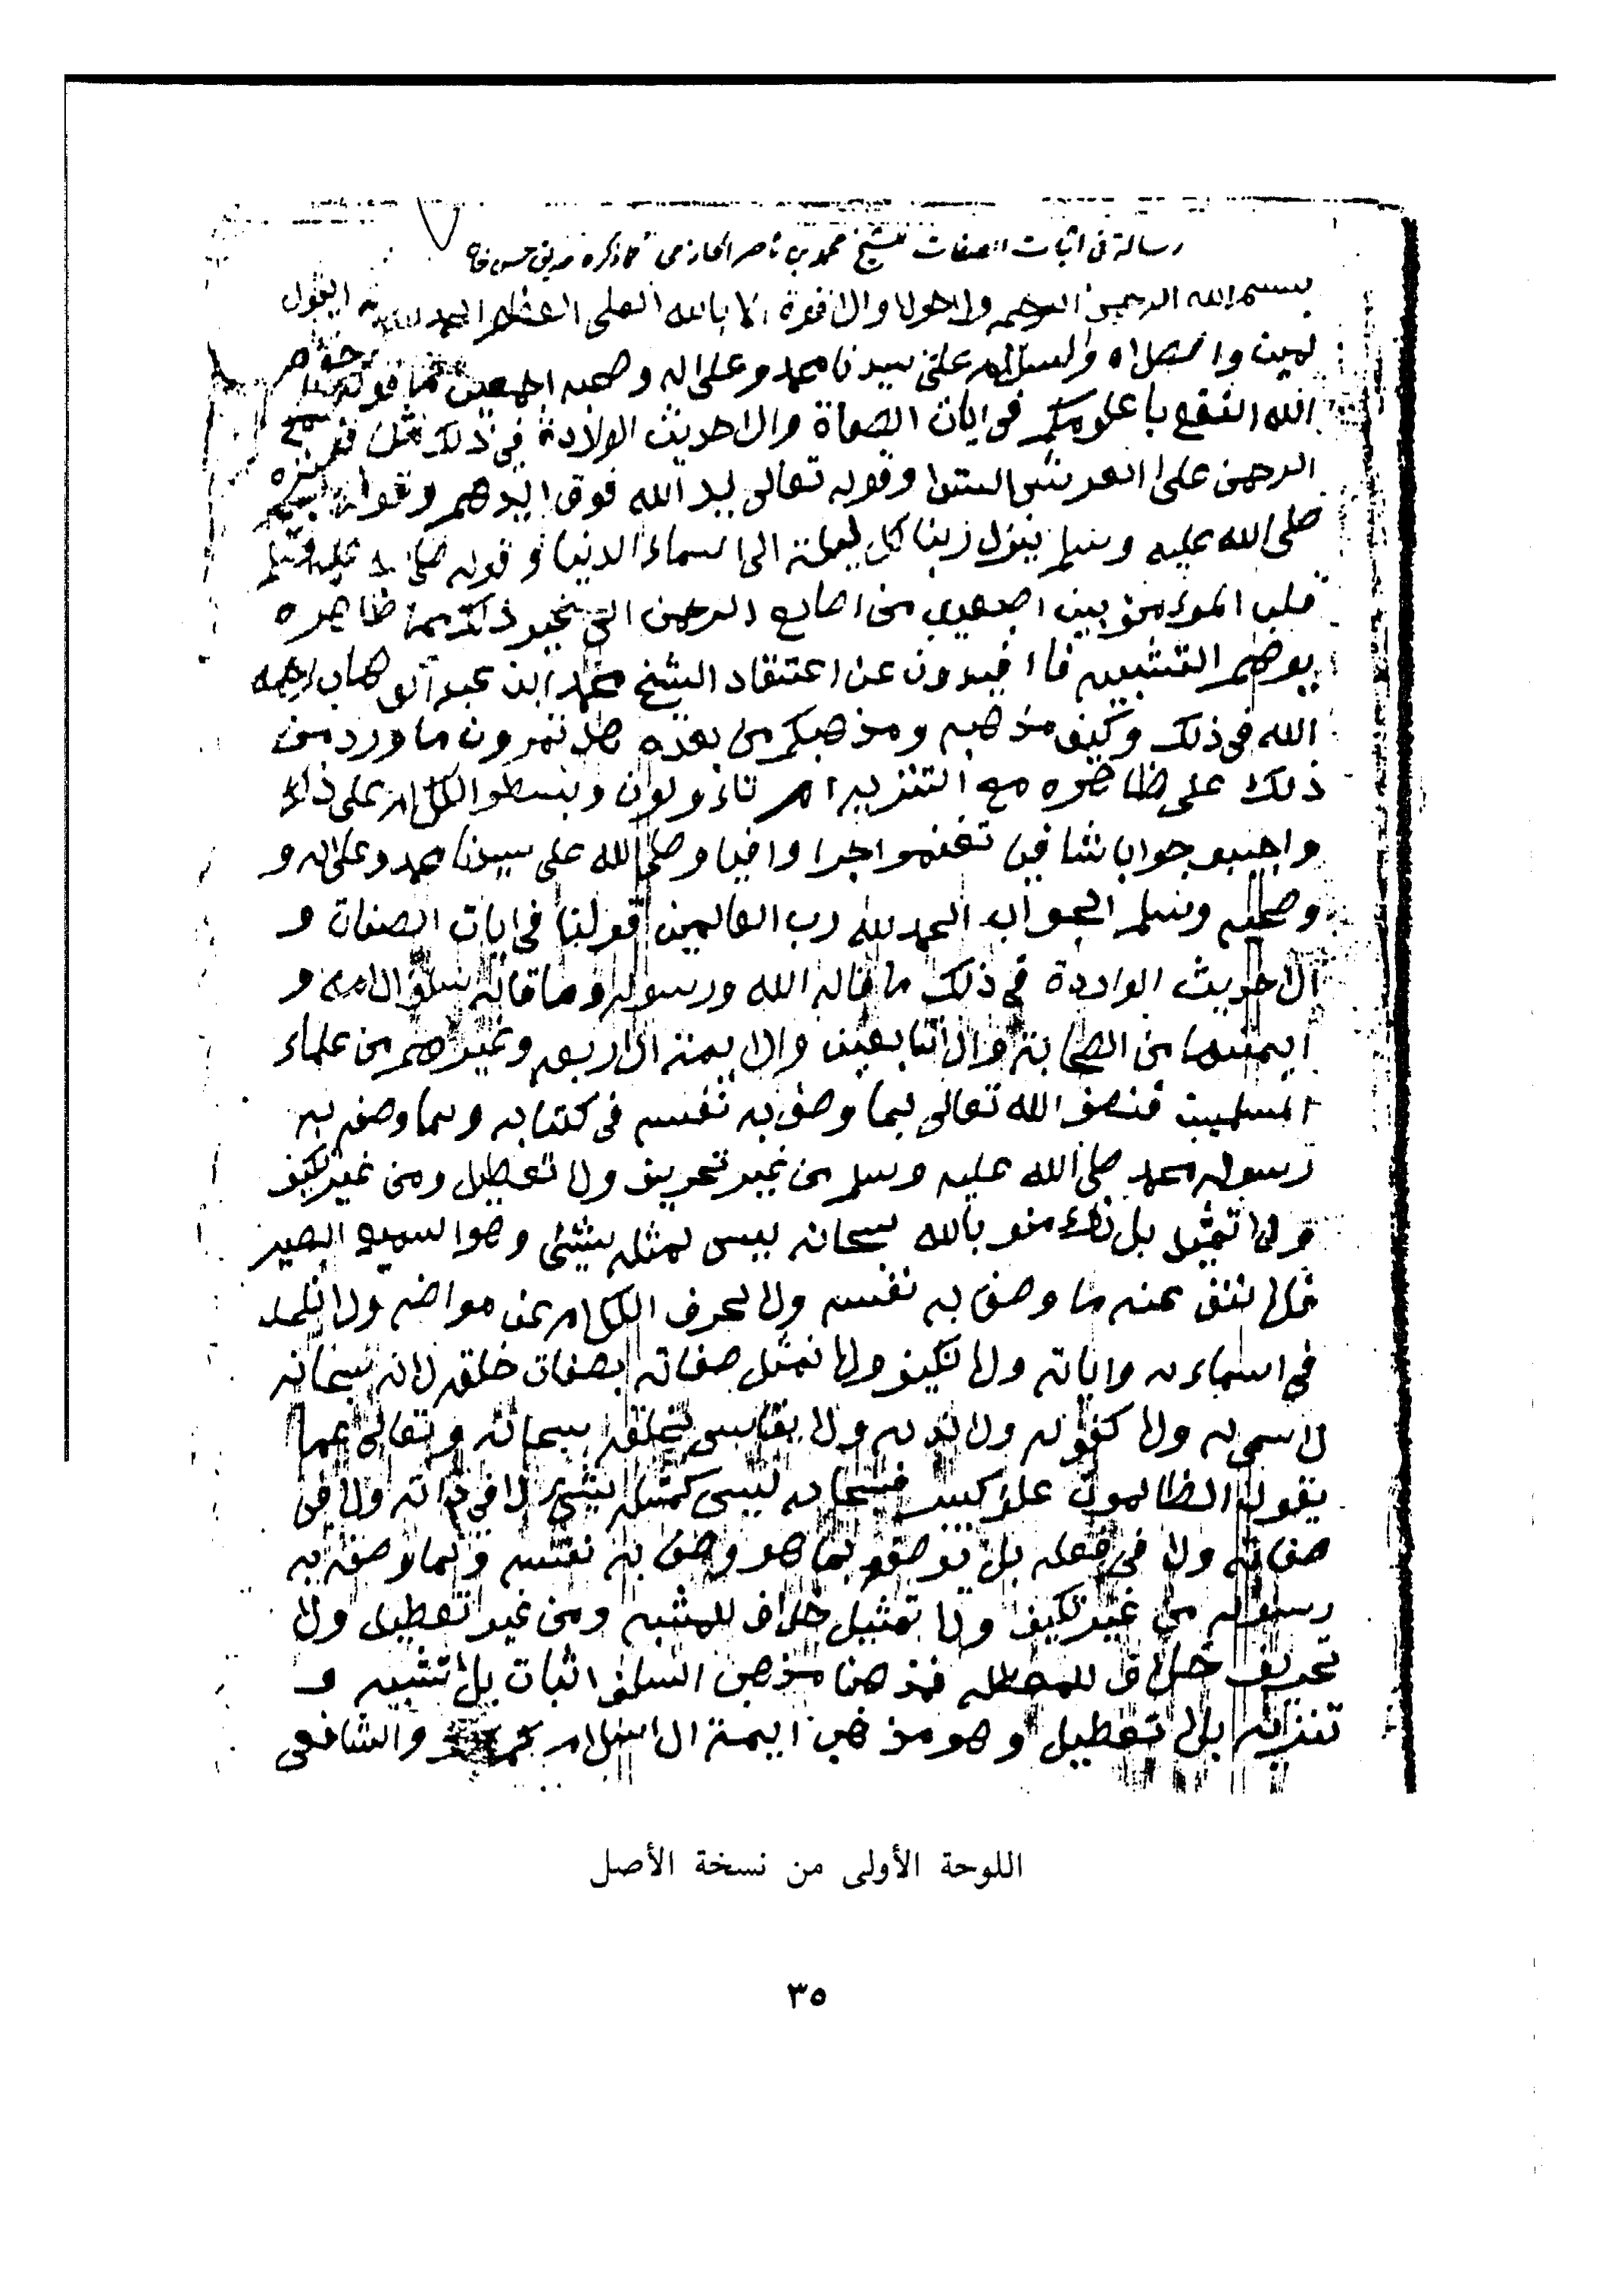 رسالة في اثبات الصفات للشيخ محمد بن ناصر الحازمي كما ذكره صديق حسن خان
بسم الله الرحمن الرحيم ولا حولا والا قوة الا بالله العلي العظيم الحمد لله
لمين والصلاه والسلام على سيدنا محمد وعلى اله وصحبه اجمعين ما قولكم
الله النفع باعلومكم في ايات الصفاة والاحديث الولادة في ذلك مثل
الرحمن على العرش الستوا وقوله تعالى يد الله فوق ايدهم وقوله
صلى الله عليه وسلم ينزل ربنا كل ليلة الى السماء الدنيا وقوله صلى الله عليه وسلم
قلب الموءمن بين اصبعين من اصابع الرحمن الى غير ذلك مما ظاهره
يوهم التشبيه فاافيدون عن اعتقاد الشيخ محمد ابن عبد الوهاب رحمه
الله في ذلك وكيف مذهبه ومذهبكم من بعده هل تمرون ما ورد من
ذلك على ظاهره مع التنزيه ام تاءولون وبسطو الكلام على ذلك
واجيبو جوابا شافيا تغنمو اجرا وافيا وصلى الله على سيدنا محمد وعلى اله و
وصحبه وسلم الجواب الحمد لله رب العالمين قولنا في ايات الصفات و
الاحديث الواردة في ذلك ما قاله الله ورسوله وما قاله سلف الامه و
ايمتها من الصحابة والتابعين والايمة الاربعه وغيرهم من علماء
المسلمين فنصف الله تعالى بما وصف به نفسه في كتابه وبما وصفه به
رسوله محمد صلى الله عليه وسلم من غير تحريف ولا تعطيل ومن غير تكيف
ولا تمثيل بل نؤمنو بالله سبحانه ليس كمثله شيئ وهوا السميع البصير
فلا ننف عنه ما وصف به نفسه ولا نحرف الكلام عن مواضه ولا نلحد
في اسماءه واياته ولا نكيف ولا نمثل صفاته بصفات خلقه لانه سبحانه
لا سمي له ولا كفو له ولا ند له ولا يقاس بخلقه سبحانه وتعالى عما
يقول الظالمون علو كبير فسبحانه ليس كمثله شيئ لا في ذاته ولا في
صفاته ولا في فعله بل يوصفو بما هو وصف به نفسه وبما وصفه به
رسوله من غير تكيف ولا تمثيل خلاف للمشبه ومن غير تعطيل ولا
تحريف خلاف للمعطله فمذهنا مذهب السلف اثبات بلا تشبيه و
تنزيه بلا تعطيل وهو مذهب ايمة الاسلام والشافعي
اللوحة الأولى من نسخة الأصل
٣٥